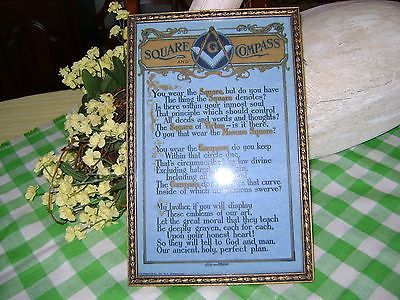 SQUARE AND COMPASS
G
You wear the Square, but do you have
The thing the Square denotes?
Is there within your inmost soul
That principle which should control
All deeds and words and thoughts?
The Square of Virtue—is it there,
O you that wear the Mason's Square?
You wear the Compass; do you keep
Within that circle due,
That's circumscribed by law divine
Excluding hatred,
Including all
The Compass that curve
Inside of which no passions swerve?
My brother, if you will display
These emblems of our art,
Let the great moral that they teach
Be deeply graven, each for each,
Upon your honest heart!
So they will tell to God and man.
Our ancient, holy, perfect plan.